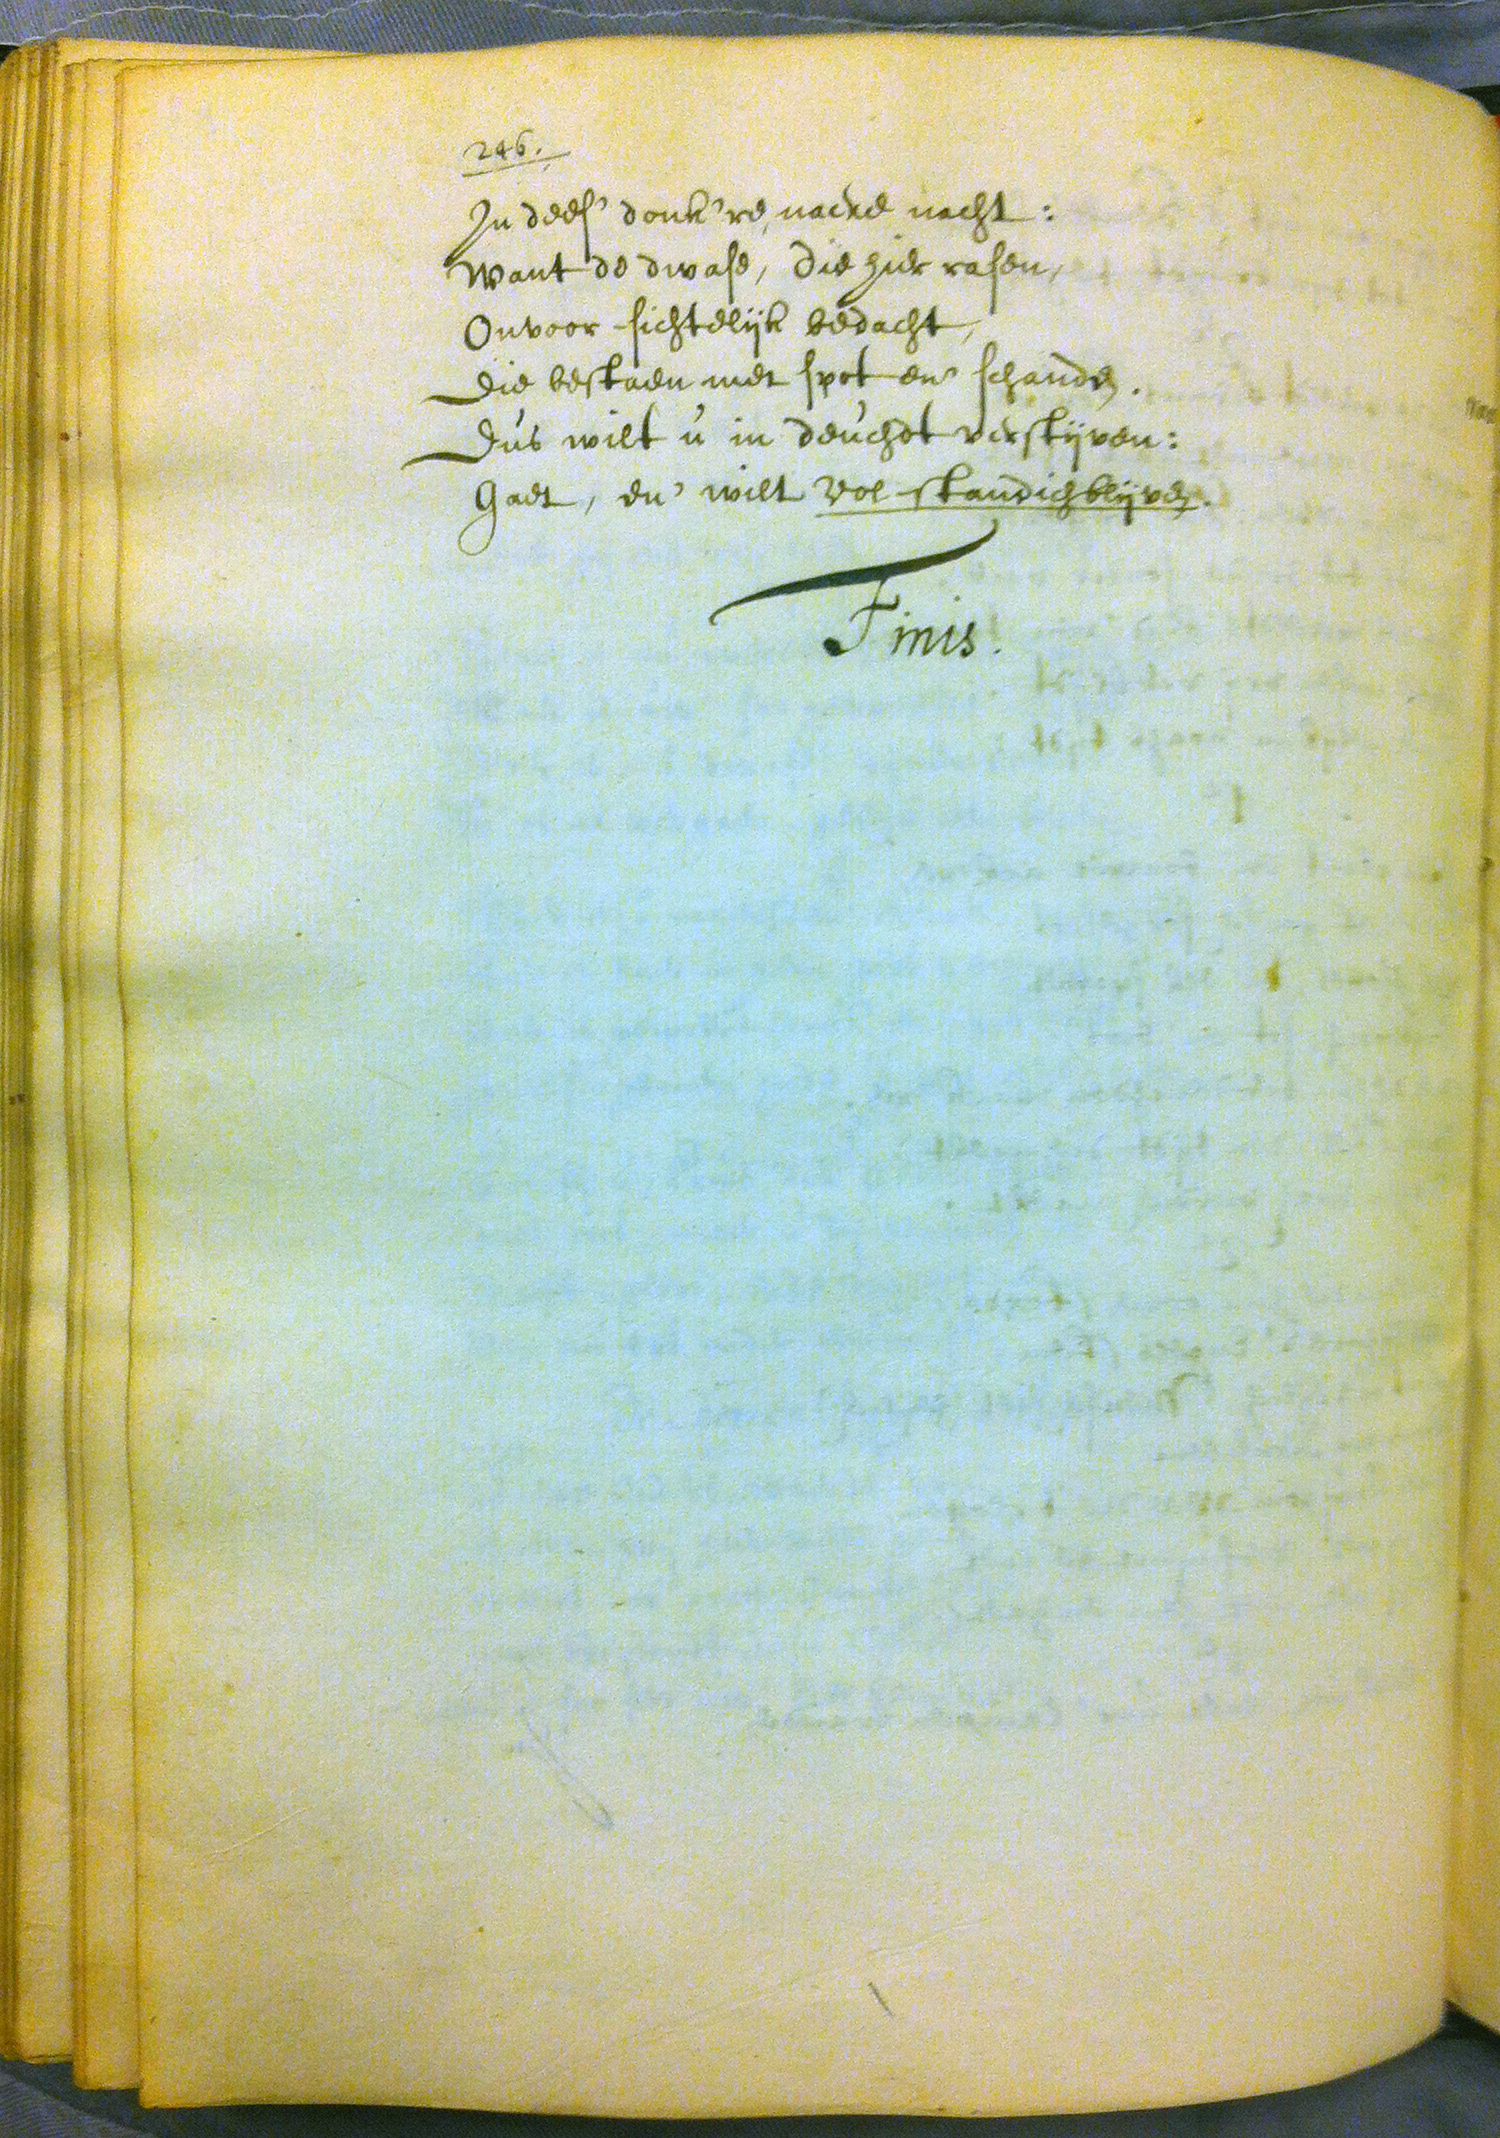 246.
In dees' donk're, nacke nacht:
Want de dwase, die hier rasen,
Onvoorsichtelijk bedacht,
Die bestaen met spot en' schanden.
Dus wilt u in deuchdt verstijven:
Gaet, en' wilt volstandigh blijven.
Finis.